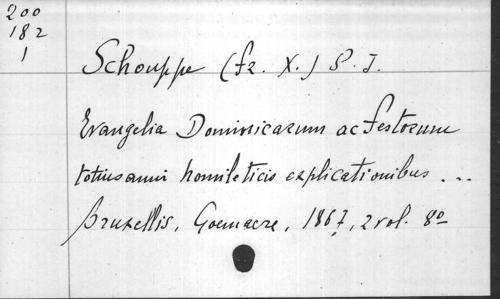 200
182
1
Schouppe (fr. X.) S. J.
Evangelia Dominicarum ac festorum
totius anni homileticis explicationibus ...
Bruxellis, Goemaere, 1867, 2 vol. 8º